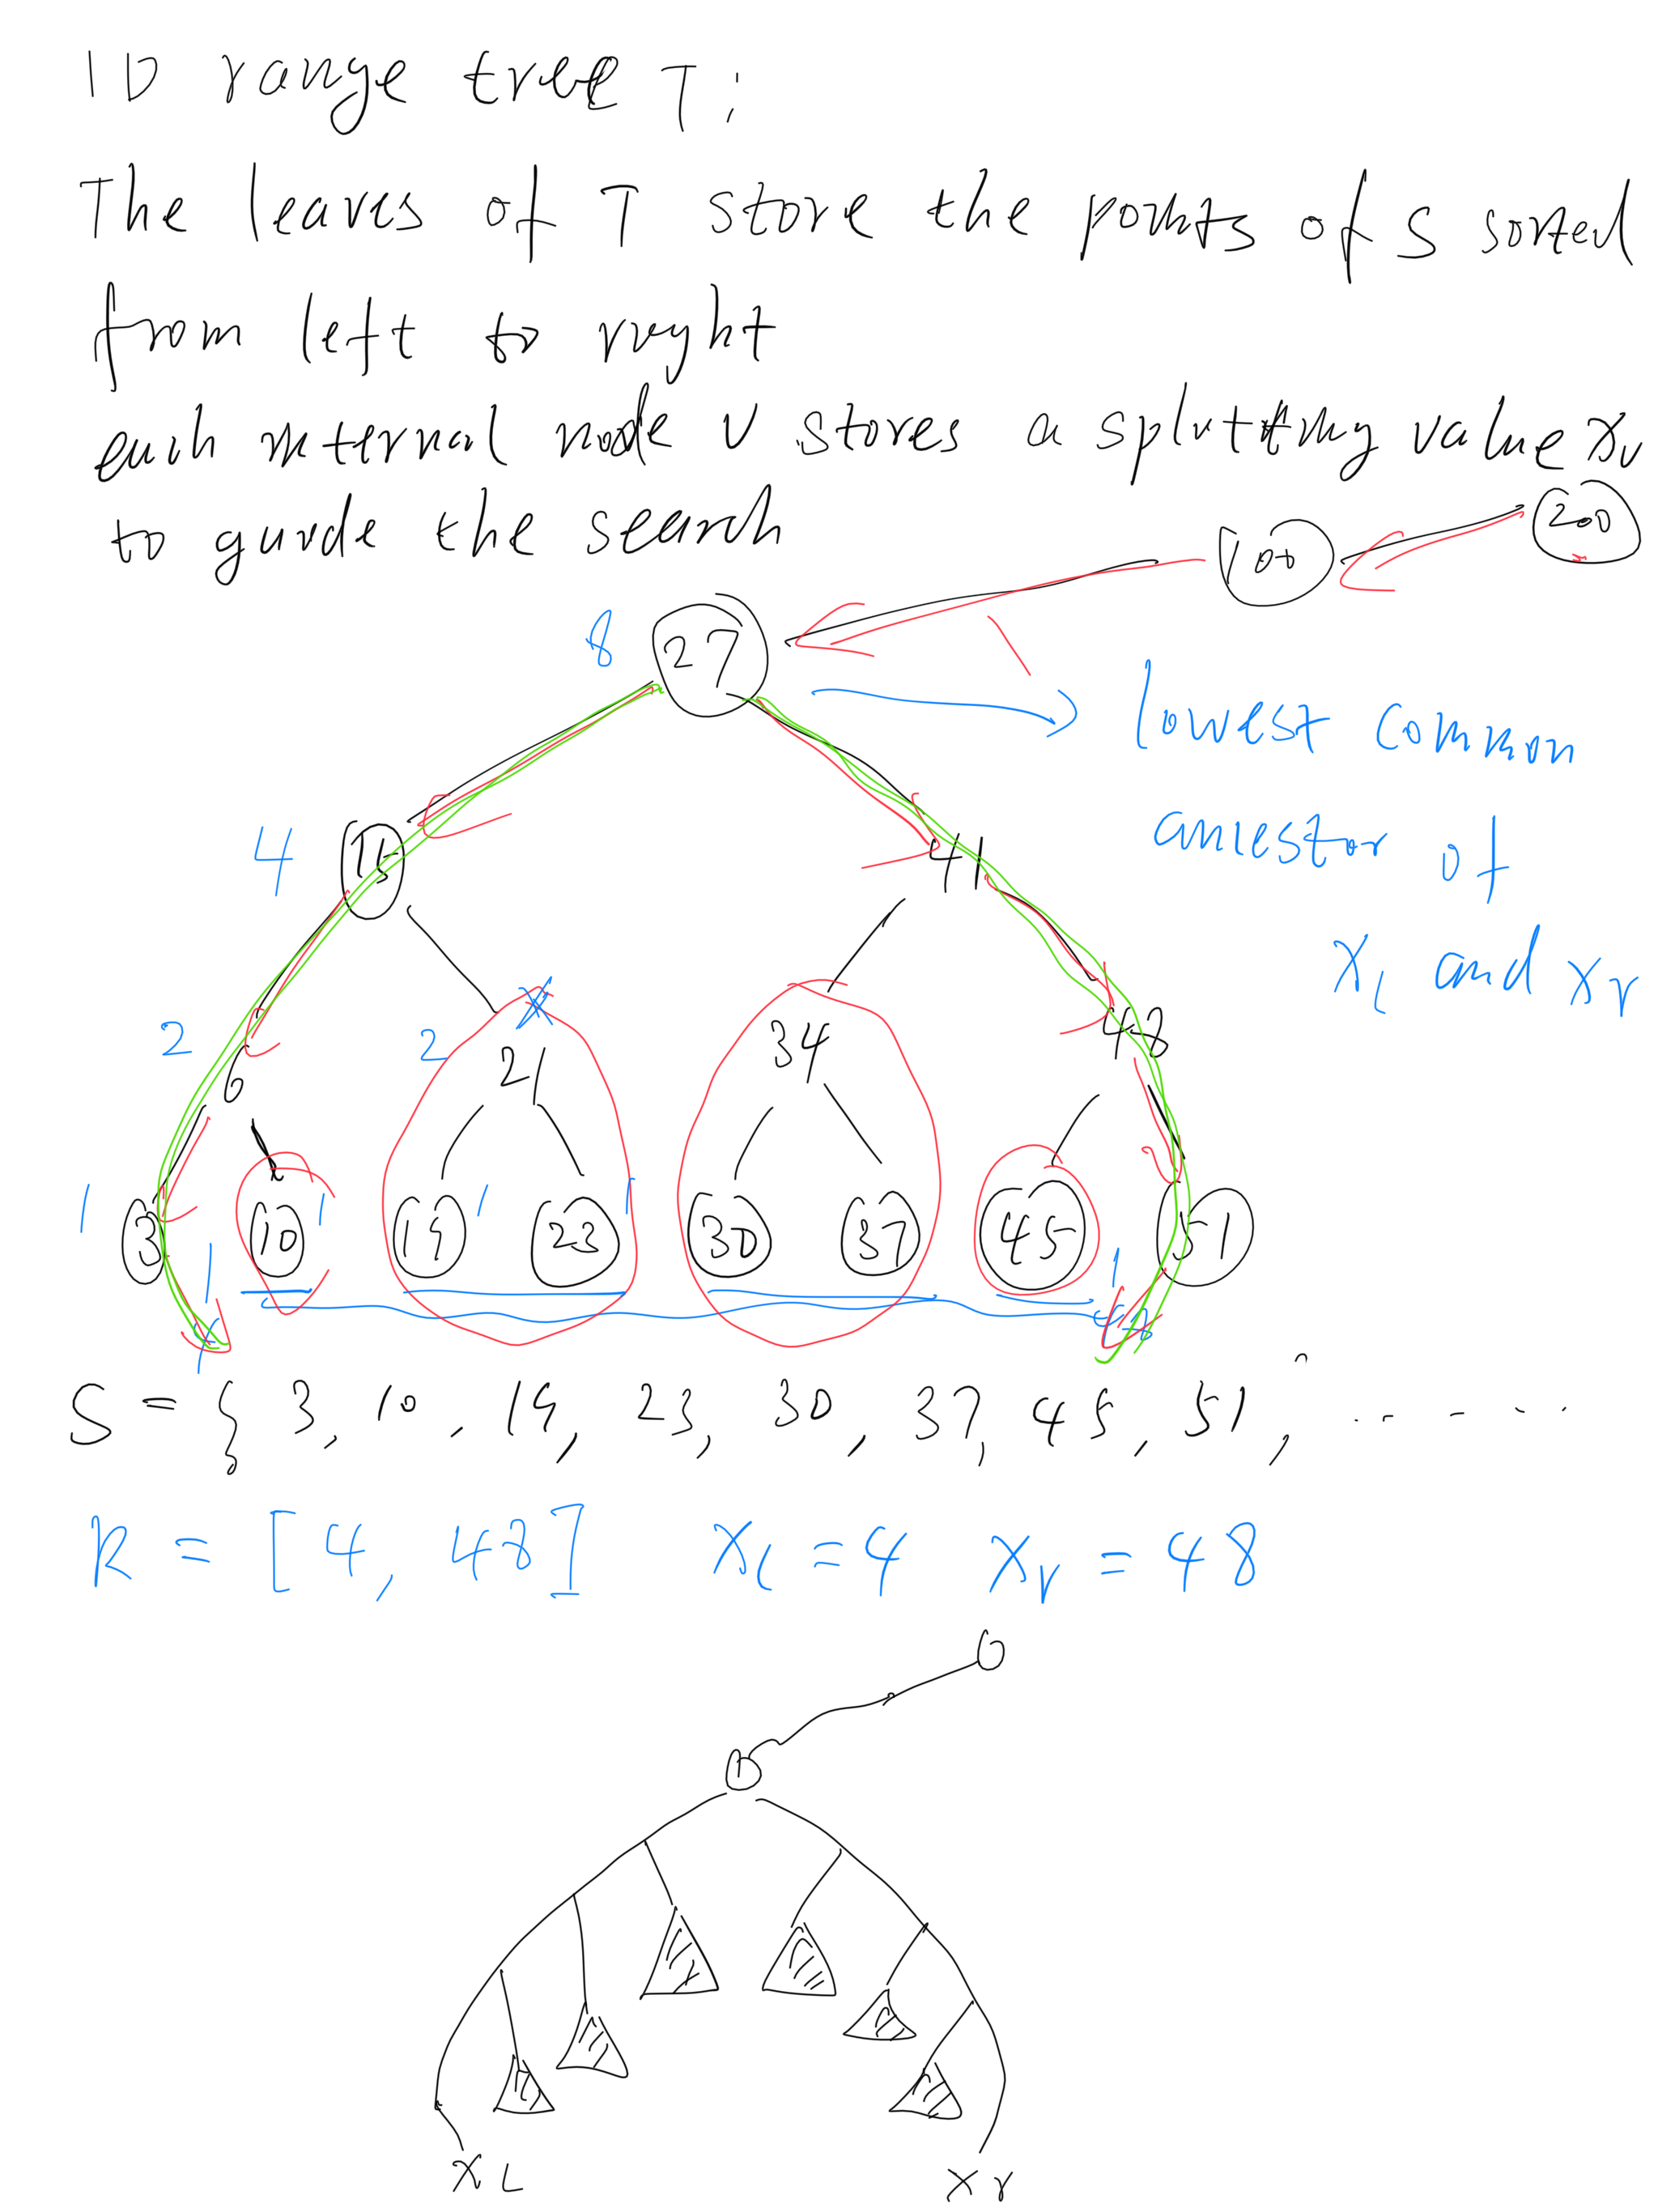 1D range tree T:
The leaves of T store the points of S sorted
from left to right
each internal node v stores a splitting value xv
to guide the search
200
100
8 27
lowest common
ancestor of
xL and xr
4 15 41
2 2 21 34 48
1 3 10 1 19 1 23 1 30 37 45 51
1 1
4 48
S = { 3, 10, 19, 23, 30, 37, 45, 51, ......
R = [4, 48] xL = 4 xr = 48
xL xr